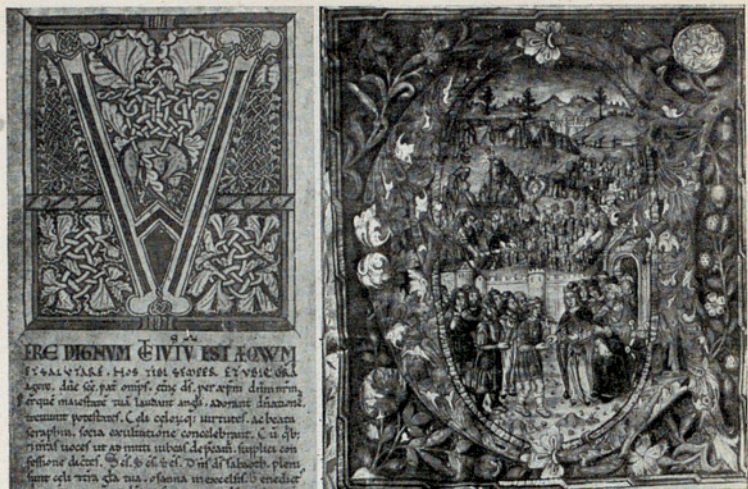 V
ERE DIGNUM ET IUTU EST ÆQUUM
ET SALUTARE. NOS TIBI SEMPER ET UBIQ GRA
agere. dñe sce. pat omips. etne ds. per xpm dnm nrm.
per que maiestate tuã laudant angli. adorant dñatione.
tremunt potestates. Celi celorqꝫ uirtutes. ac beata
seraphin. socia exultatione concelebrant. Cũ qb;
nras uoces ut admitti iubeas depcam. supplici con
fessione dictes. Scs. scs. scs. Dñs ds sabaoth. pleni
sunt celi & tra gla tua. osanna in excelsis. Benedict